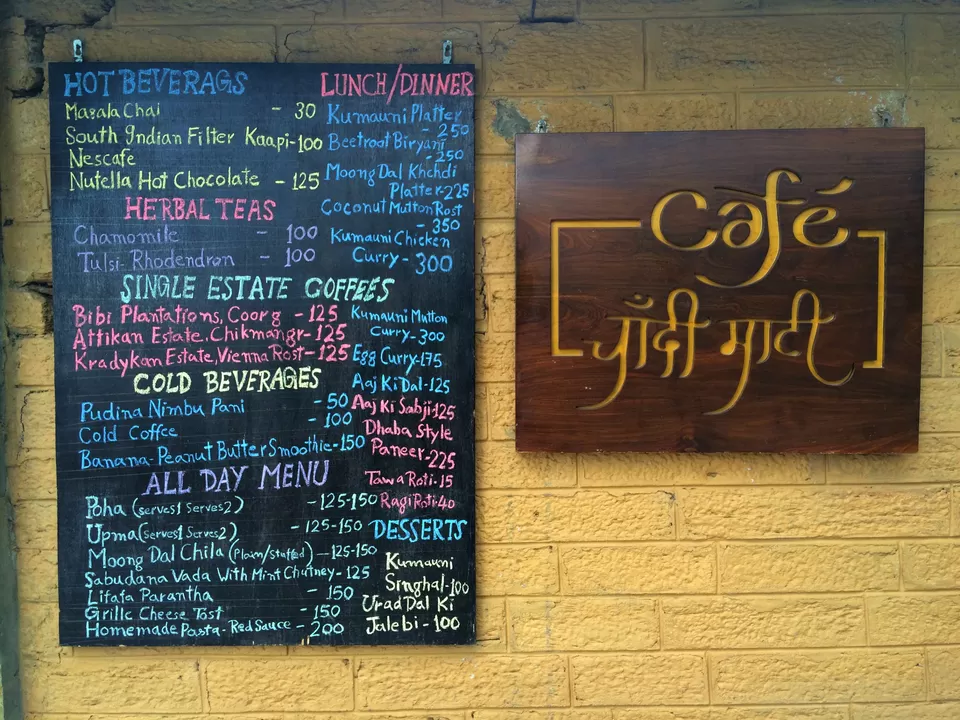 HOT BEVERAGS
Masala Chai - 30
South Indian Filter Kaapi-100
Nescafe
Nutella Hot Chocolate - 125
HERBAL TEAS
Chamomile - 100
Tulsi-Rhodendron - 100
SINGLE ESTATE COFFEES
Bibi Plantations, Coorg - 125
Attikan Estate, Chikmangr-125
Kradykan Estate, Vienna Rost-125
COLD BEVERAGES
Pudina Nimbu Pani - 50
Cold Coffee - 100
Banana-Peanut Butter Smoothie-150
ALL DAY MENU
Poha (serves1 Serves2) -125-150
Upma (serves1 Serves2) -125-150
Moong Dal Chila (Plain/stuffed) -125-150
Sabudana Vada With Mint Chutney-125
Lifafa Parantha - 150
Grille Cheese Tost - 150
Homemade Pasta-Red Sauce - 200
LUNCH/DINNER
Kumauni Platter
- 250
Beetroot Biryani
-250
Moong Dal Khchdi
Platter-225
Coconut Mutton Rost
- 350
Kumauni Chicken
Curry- 300
Kumauni Mutton
Curry-300
Egg Curry-175
Aaj Ki Dal-125
Aaj Ki Sabji-125
Dhaba Style
Paneer-225
Tawa Roti-15
Ragi Roti-40
DESSERTS
Kumauni
Singhal-100
Urad Dal Ki
Jalebi - 100
Café
चाँदी माटी